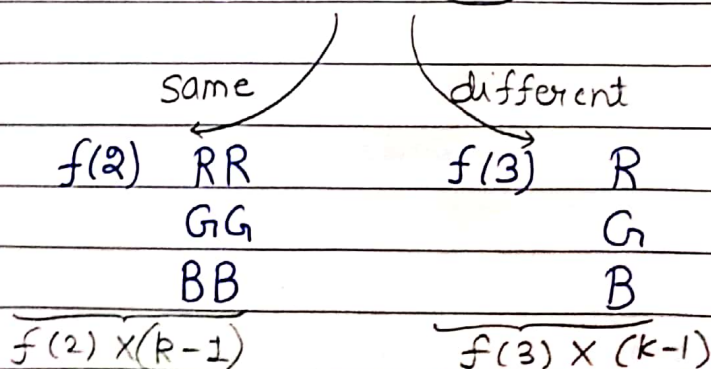 same different
f(2) RR f(3) R
GG G
BB B
f(2) X(k-1) f(3) X (k-1)